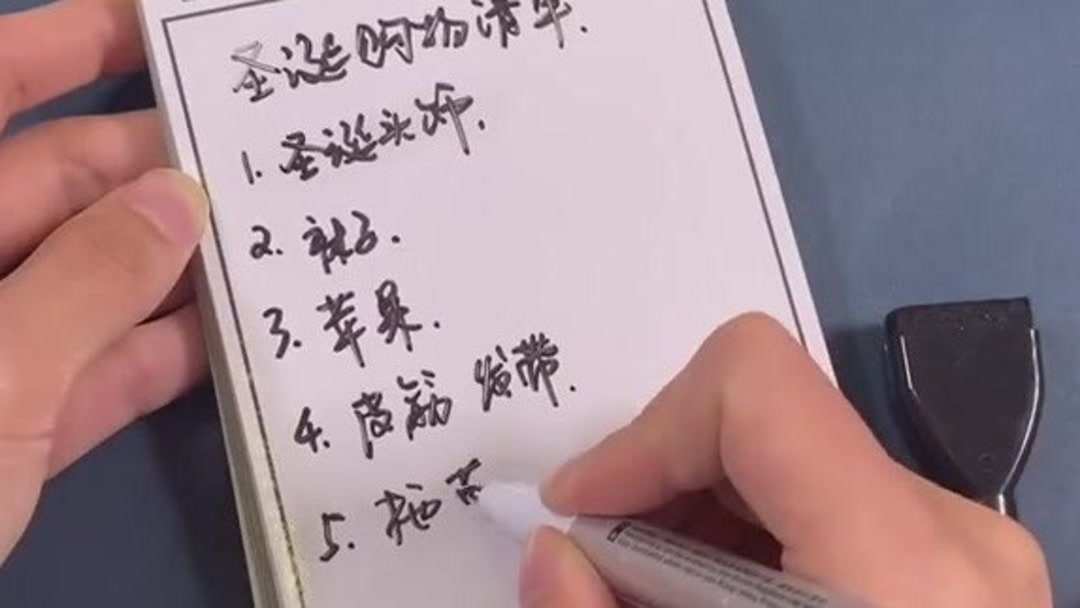 圣诞购物清单.
1. 圣诞头饰.
2. 袜子.
3. 苹果.
4. 皮筋 发带.
5.